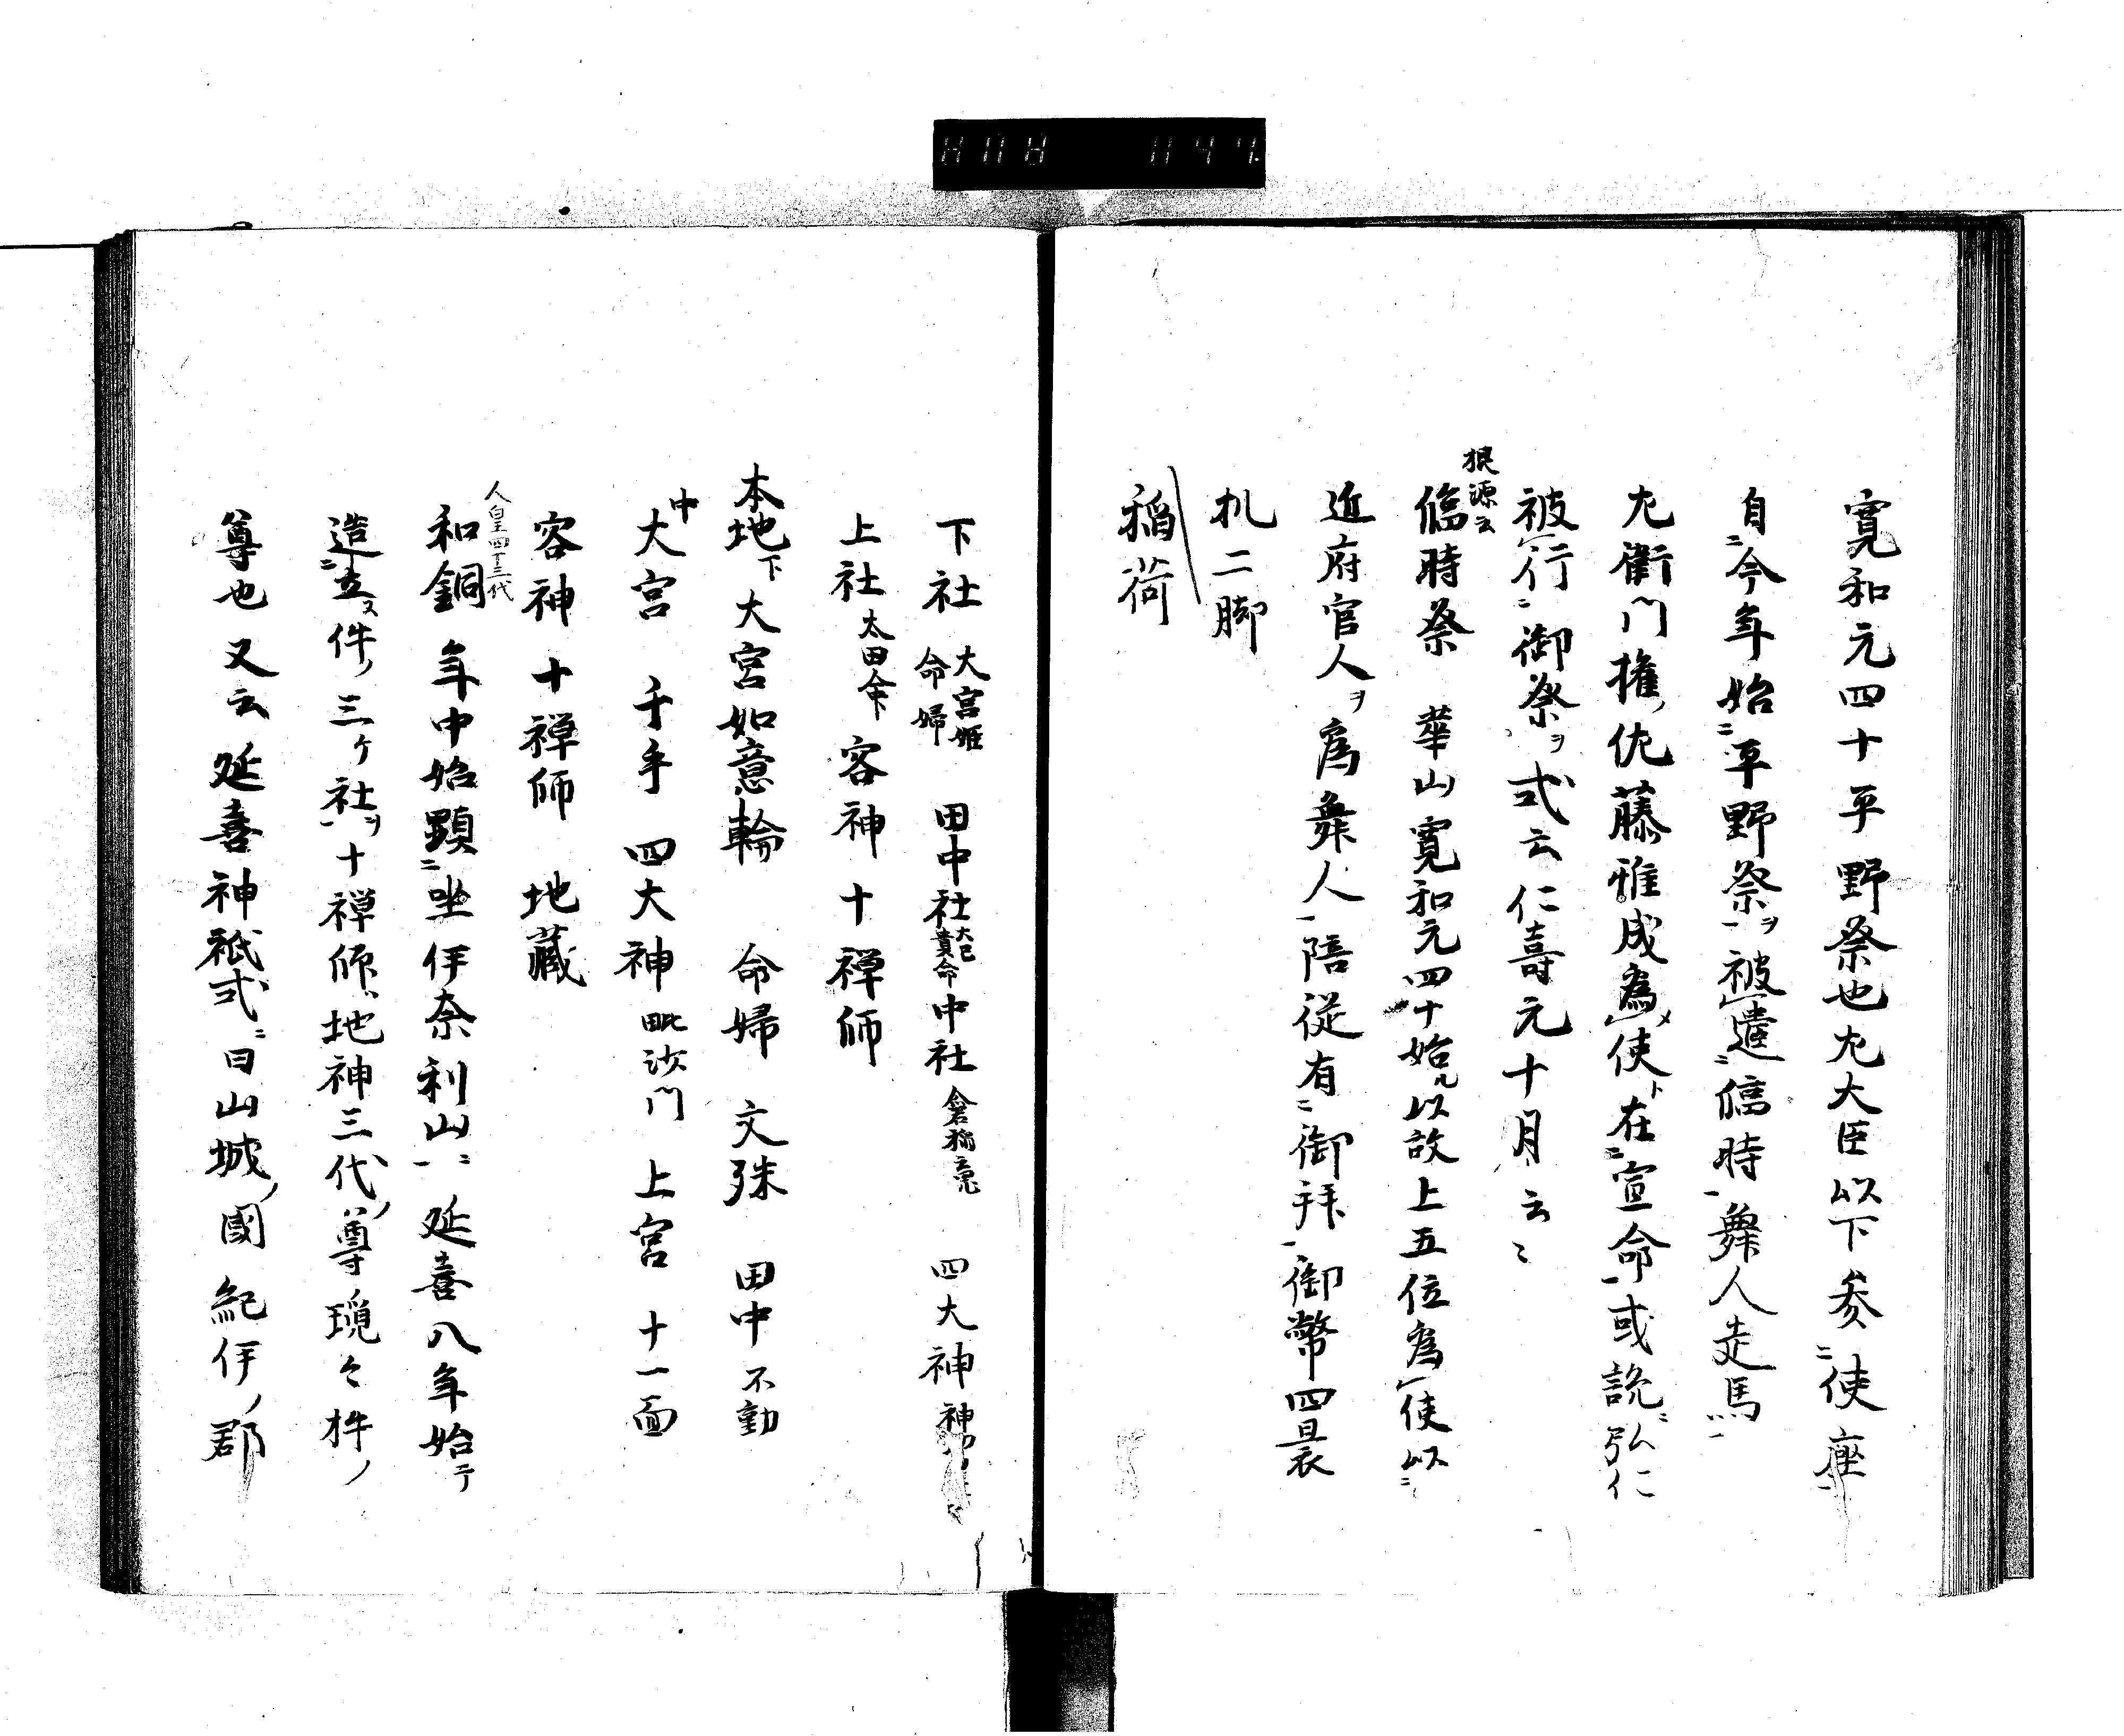 寛和元四十平野祭也左大臣以下参ニ使座一
自ニ今年始ニ平野祭ヲ一被レ遣ニ臨時一舞人走馬一
左衛門権ノ佐藤雅成為レメ使ト在ニ宣命一或説ニ弘仁
被レ行ニ御祭ヲ式云仁寿元十月云〻
根源云
臨時祭 華山寛和元四十始ル以故上五位為レ使以ニ
近府官人ヲ為舞人一陪従有ニ御拝一御幣四裹
札二脚
稲荷
下社 大宮姫命婦 田中社 大己貴命 中社 倉稲魂 四大神
上社 太田命 客神十禅師
本地下大宮如意輪 命婦 文殊 田中 不動
中大宮 千手 四大神 毗沙門 上宮 十一面
客神 十禅師 地蔵
人皇四十三代
和銅年中始顕ニ坐伊奈利山一ニ延喜八年始テ
造ニ立ス件ノ三ケ社ヲ一十禅師ハ地神三代ノ尊瓊々杵ノ
尊也又云延喜神祇式ニ曰山城ノ國紀伊ノ郡